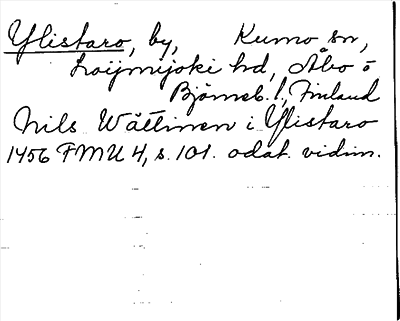 Ylistaro, by, Kumo sn,
Loijmijoki hd, Åbo o
Björneb. l, Finland
Nils Wättinen i Ylistaro
1456 FMU 4, s. 101. odat. vidim.